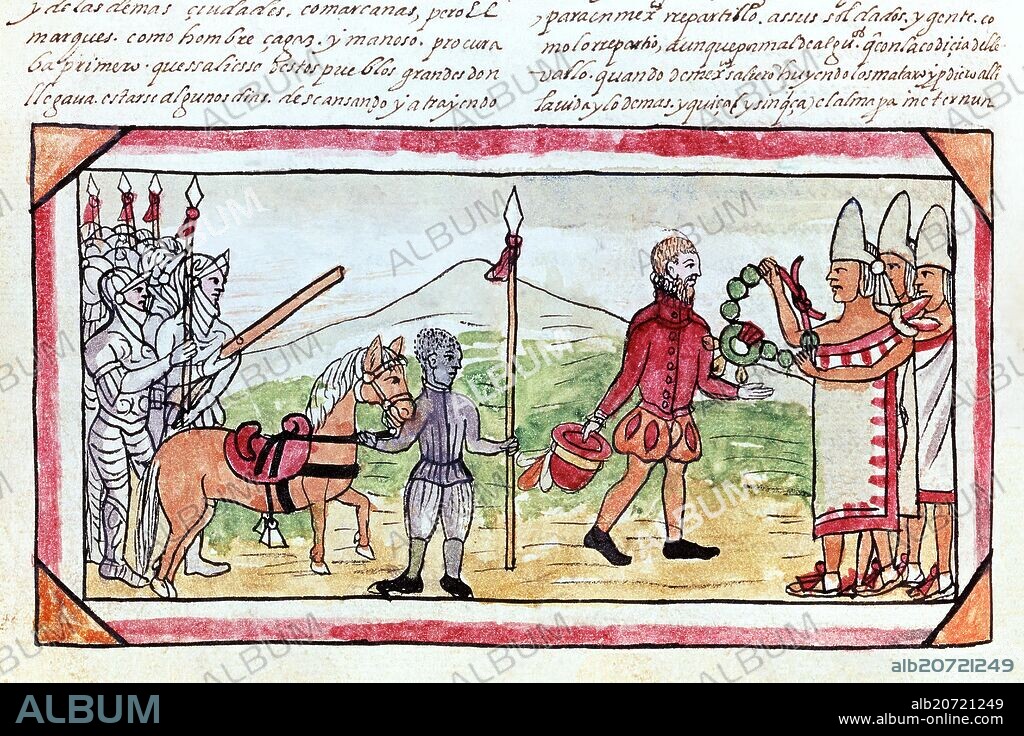 y de las demas çiudades. comarcanas, pero El
marques. como hombre çagaz. y manoso, procura
ba primero. que ssaliesse destos pueblos grandes don
llegava. estarse algunos dias. descansando y atrayendo
para en mex^o rrepartillo. a ssus soldados. y gente. co
mo lo rrepartio, aunque para mal de algu^os. q̃ con la codiçia de lle
vallo. quando de mex^o salierõ huyendo los matarõ y pdierõ alli
la vida y lo demas. y quiça (y sin q̃ça) el alma pa
ALBUM
alb20721249
ALBUM
alb20721249
www.album-online.com